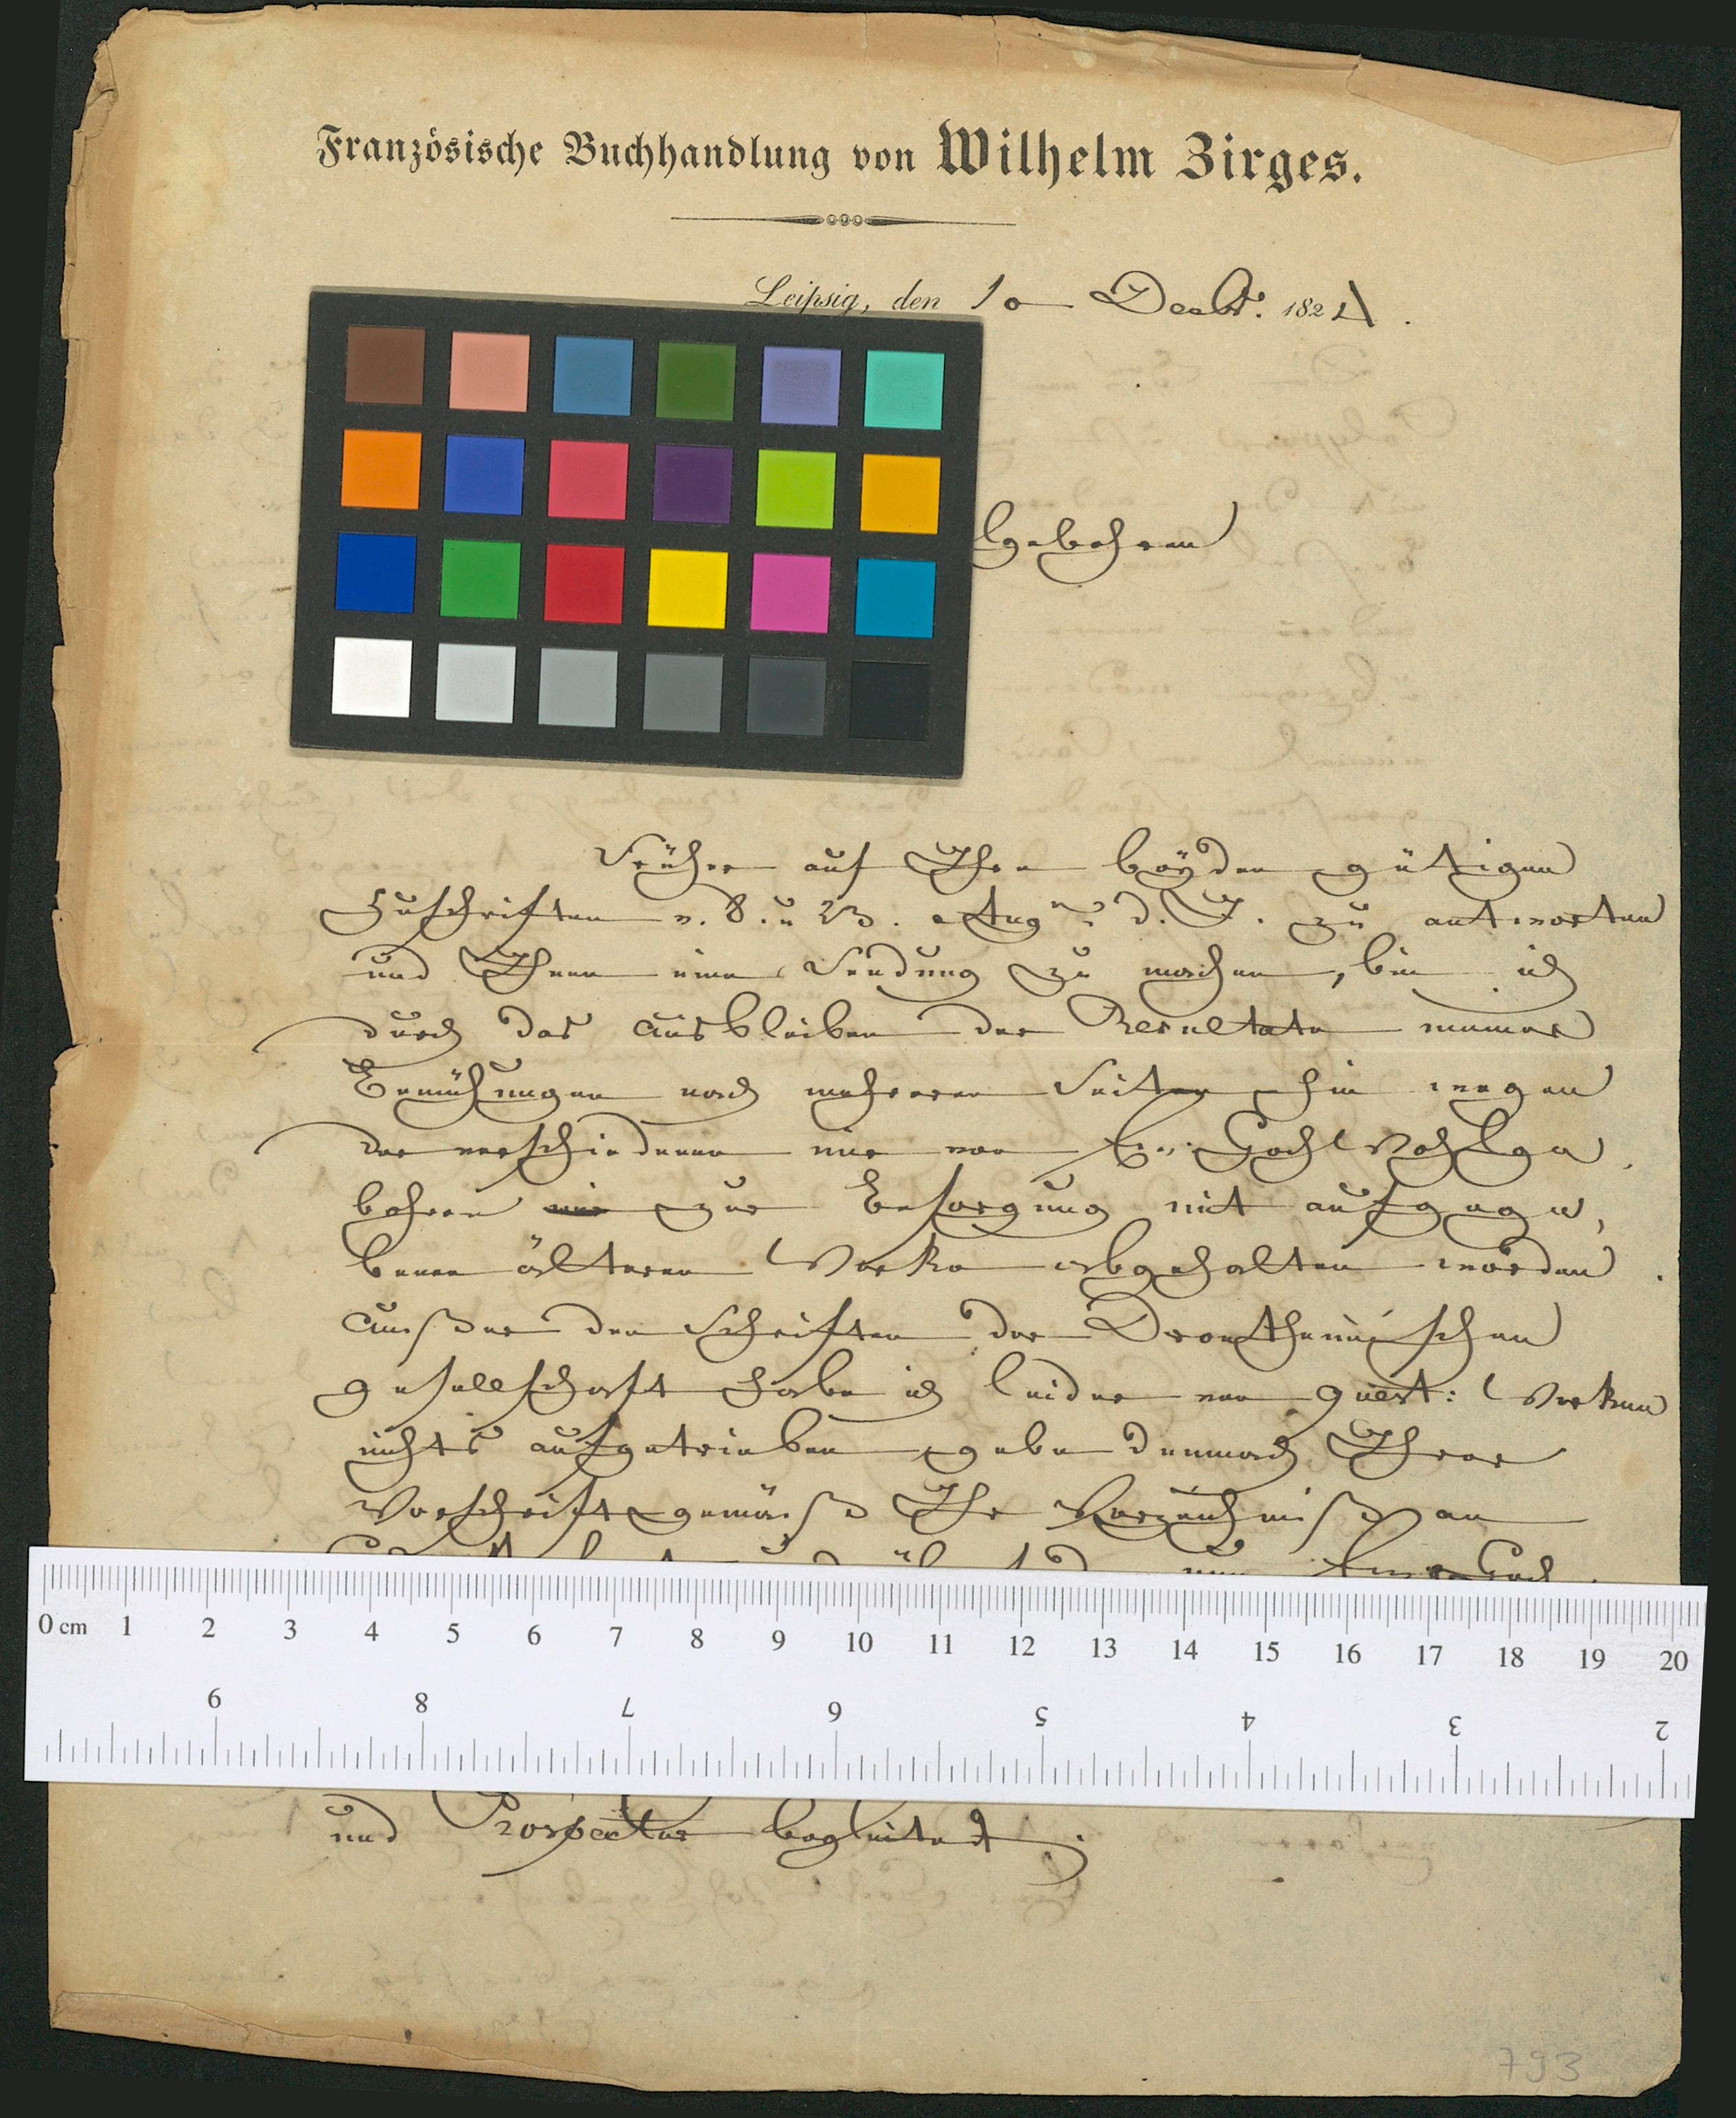 Französische Buchhandlung von Wilhelm Zirges.
Leipzig, den 10 Decbr. 1824.
lgebohren
Früher auf Ihre beyden gütigen
Zuschriften v. 8. u 23. Aug d. J. zu antworten
und Ihnen eine Sendung zu machen, bin ich
durch das Ausbleiben der Resultate meiner
Bemühungen nach mehreren Seiten hin wegen
der verschiedenen mir von Ew: Hochwohlge
bohren zur Besorgung mit aufgege
benen älteren Werke abgehalten worden.
Außer den Schriften der Drontheimischen
Gesellschaft habe ich leider von quest: Werken
nichts aufgetrieben gebe demnach Ihrer
Vorschrift gemäß Ihr Verzeichniß an
und Prospectus begleitet
793
0 cm 1 2 3 4 5 6 7 8 9 10 11 12 13 14 15 16 17 18 19 20
2 3 4 5 6 7 8 9